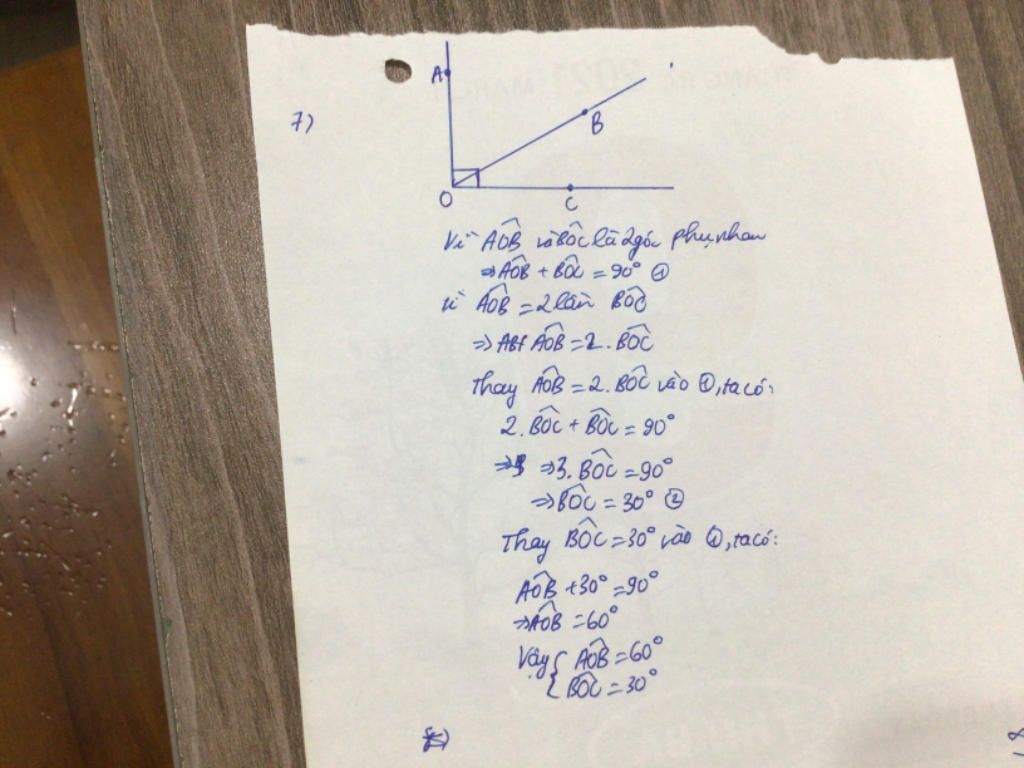 7)
A
B
O
C
Vì AÔB và BÔC là 2 góc phụ nhau
⇒ AÔB + BÔC = 90° ①
vì AÔB = 2 lần BÔC
⇒ AÔB = 2. BÔC
Thay AÔB = 2. BÔC vào ①, ta có:
2. BÔC + BÔC = 90°
⇒ 3. BÔC = 90°
⇒ BÔC = 30° ②
Thay BÔC = 30° vào ①, ta có:
AÔB + 30° = 90°
⇒ AÔB = 60°
Vậy { AÔB = 60°
BÔC = 30°